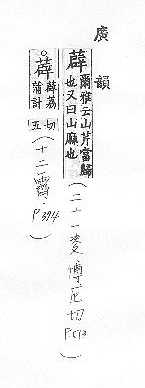 廣韻
薜
爾雅云山芹當歸
也又曰山麻也
(二十一麥博厄切)
薜
薜荔
蒲計
切
五
(十二霽 P394)